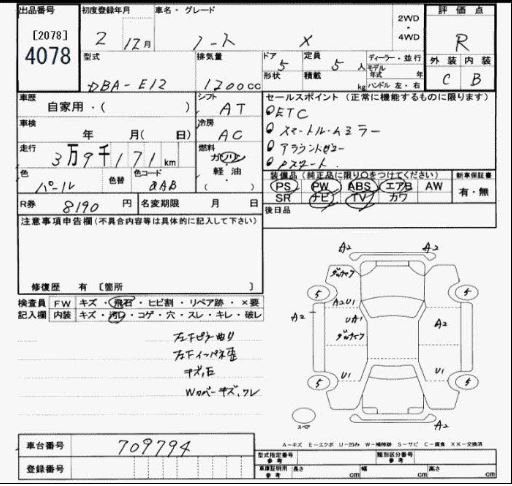 出品番号
[2078]
4078
初度登録年月
2 12月
車名・グレード
ノート X
2WD
・
4WD
評価点
R
型式
DBA-E12
排気量
1200cc
ドア 5
形状
定員 5人
積載 kg
ディーラー・並行
モデル
年式 年
ハンドル 左・右
外装 内装
C B
車歴
自家用・( )
シフト
AT
車検
年 月( 日)
冷房
AC
走行
3万9千171km
燃料
ガソリン
軽・油
( )
色 パール
色替
色コード QAB
R券 8190 円
名変期限 月 日
セールスポイント (正常に機能するものに限ります)
ETC
スマートルームミラー
アラウンドビュー
Pスタート
装備品(純正品に限り○をつけてください)
PS PW ABS エアB AW
SR ナビ TV カワ
新車保証書
有・無
後日品
注意事項申告欄(不具合内容等は具体的に記入して下さい)
修復歴 有 [箇所 ]
検査員 FW キズ・飛石・ヒビ割・リペア跡・×要
記入欄 内装 キズ・汚レ・コゲ・穴・スレ・キレ・破レ
キズ,石
Wカバーキズ,ワレ
A2
A2
A2U1
5
5
UA1
A2
A2
U1
U1
5
5
A2
スペア
A-キズ E-エクボ U-凹み W-補修跡 S-サビ C-腐食 XX-交換済
車台番号 709794
登録番号
型式指定番号
参考
類別区分番号
参考
車庫証明用
参考
長さ cm 幅 cm 高さ cm